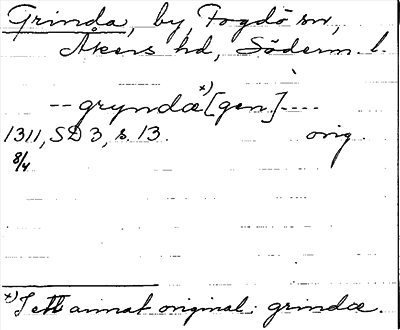 Grinda, by, Fogdö sn,
Åkers hd, Söderm. l.
-- gryndæ *) [gen] ----
1311, SD 3, s. 13. orig.
8/4
*) I ett annat original: grindæ.